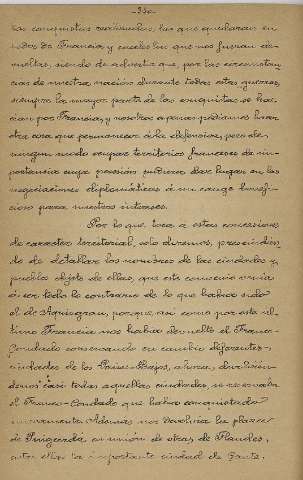 -33-
las conquistas realizadas, las que quedaran en
de Francia y cuales las que nos fueran de-
vueltas, siendo de advertir que, por las circunstan-
cias de nuestra nación durante todas estas guerras,
siempre la mayor parte de las conquistas se ha-
cían por Francia, y nosotros apenas podíamos hacer
otra cosa que permanecer á la defensiva, pero de
ningun modo ocupar territorios franceses de im-
portancia cuya posesión pudiera dar lugar en las
negociaciones diplomáticas á un cange benefi-
cioso para nuestros intereses.
Por lo que toca á estas concesiones
de caracter territorial, solo diremos, prescindien-
do de detallar los nombres de las ciudades y
pueblos objeto de ellas, que este convenio venía
á ser todo lo contrario de lo que había sido
el de Aquisgran, porque, así como por este ul-
timo Francia nos había devuelto el Franco-
Condado conservando en cambio
ciudades de los Paises-Bajos, ahora, devolvién-
donos casi todas aquellas ciudades, se reservaba
el Franco-Condado que había conquistado
nuevamente. Además nos devolvía la plaza
de Puigcerdá en unión de otras de Flandes,
entre ellas la importante ciudad de Gante.